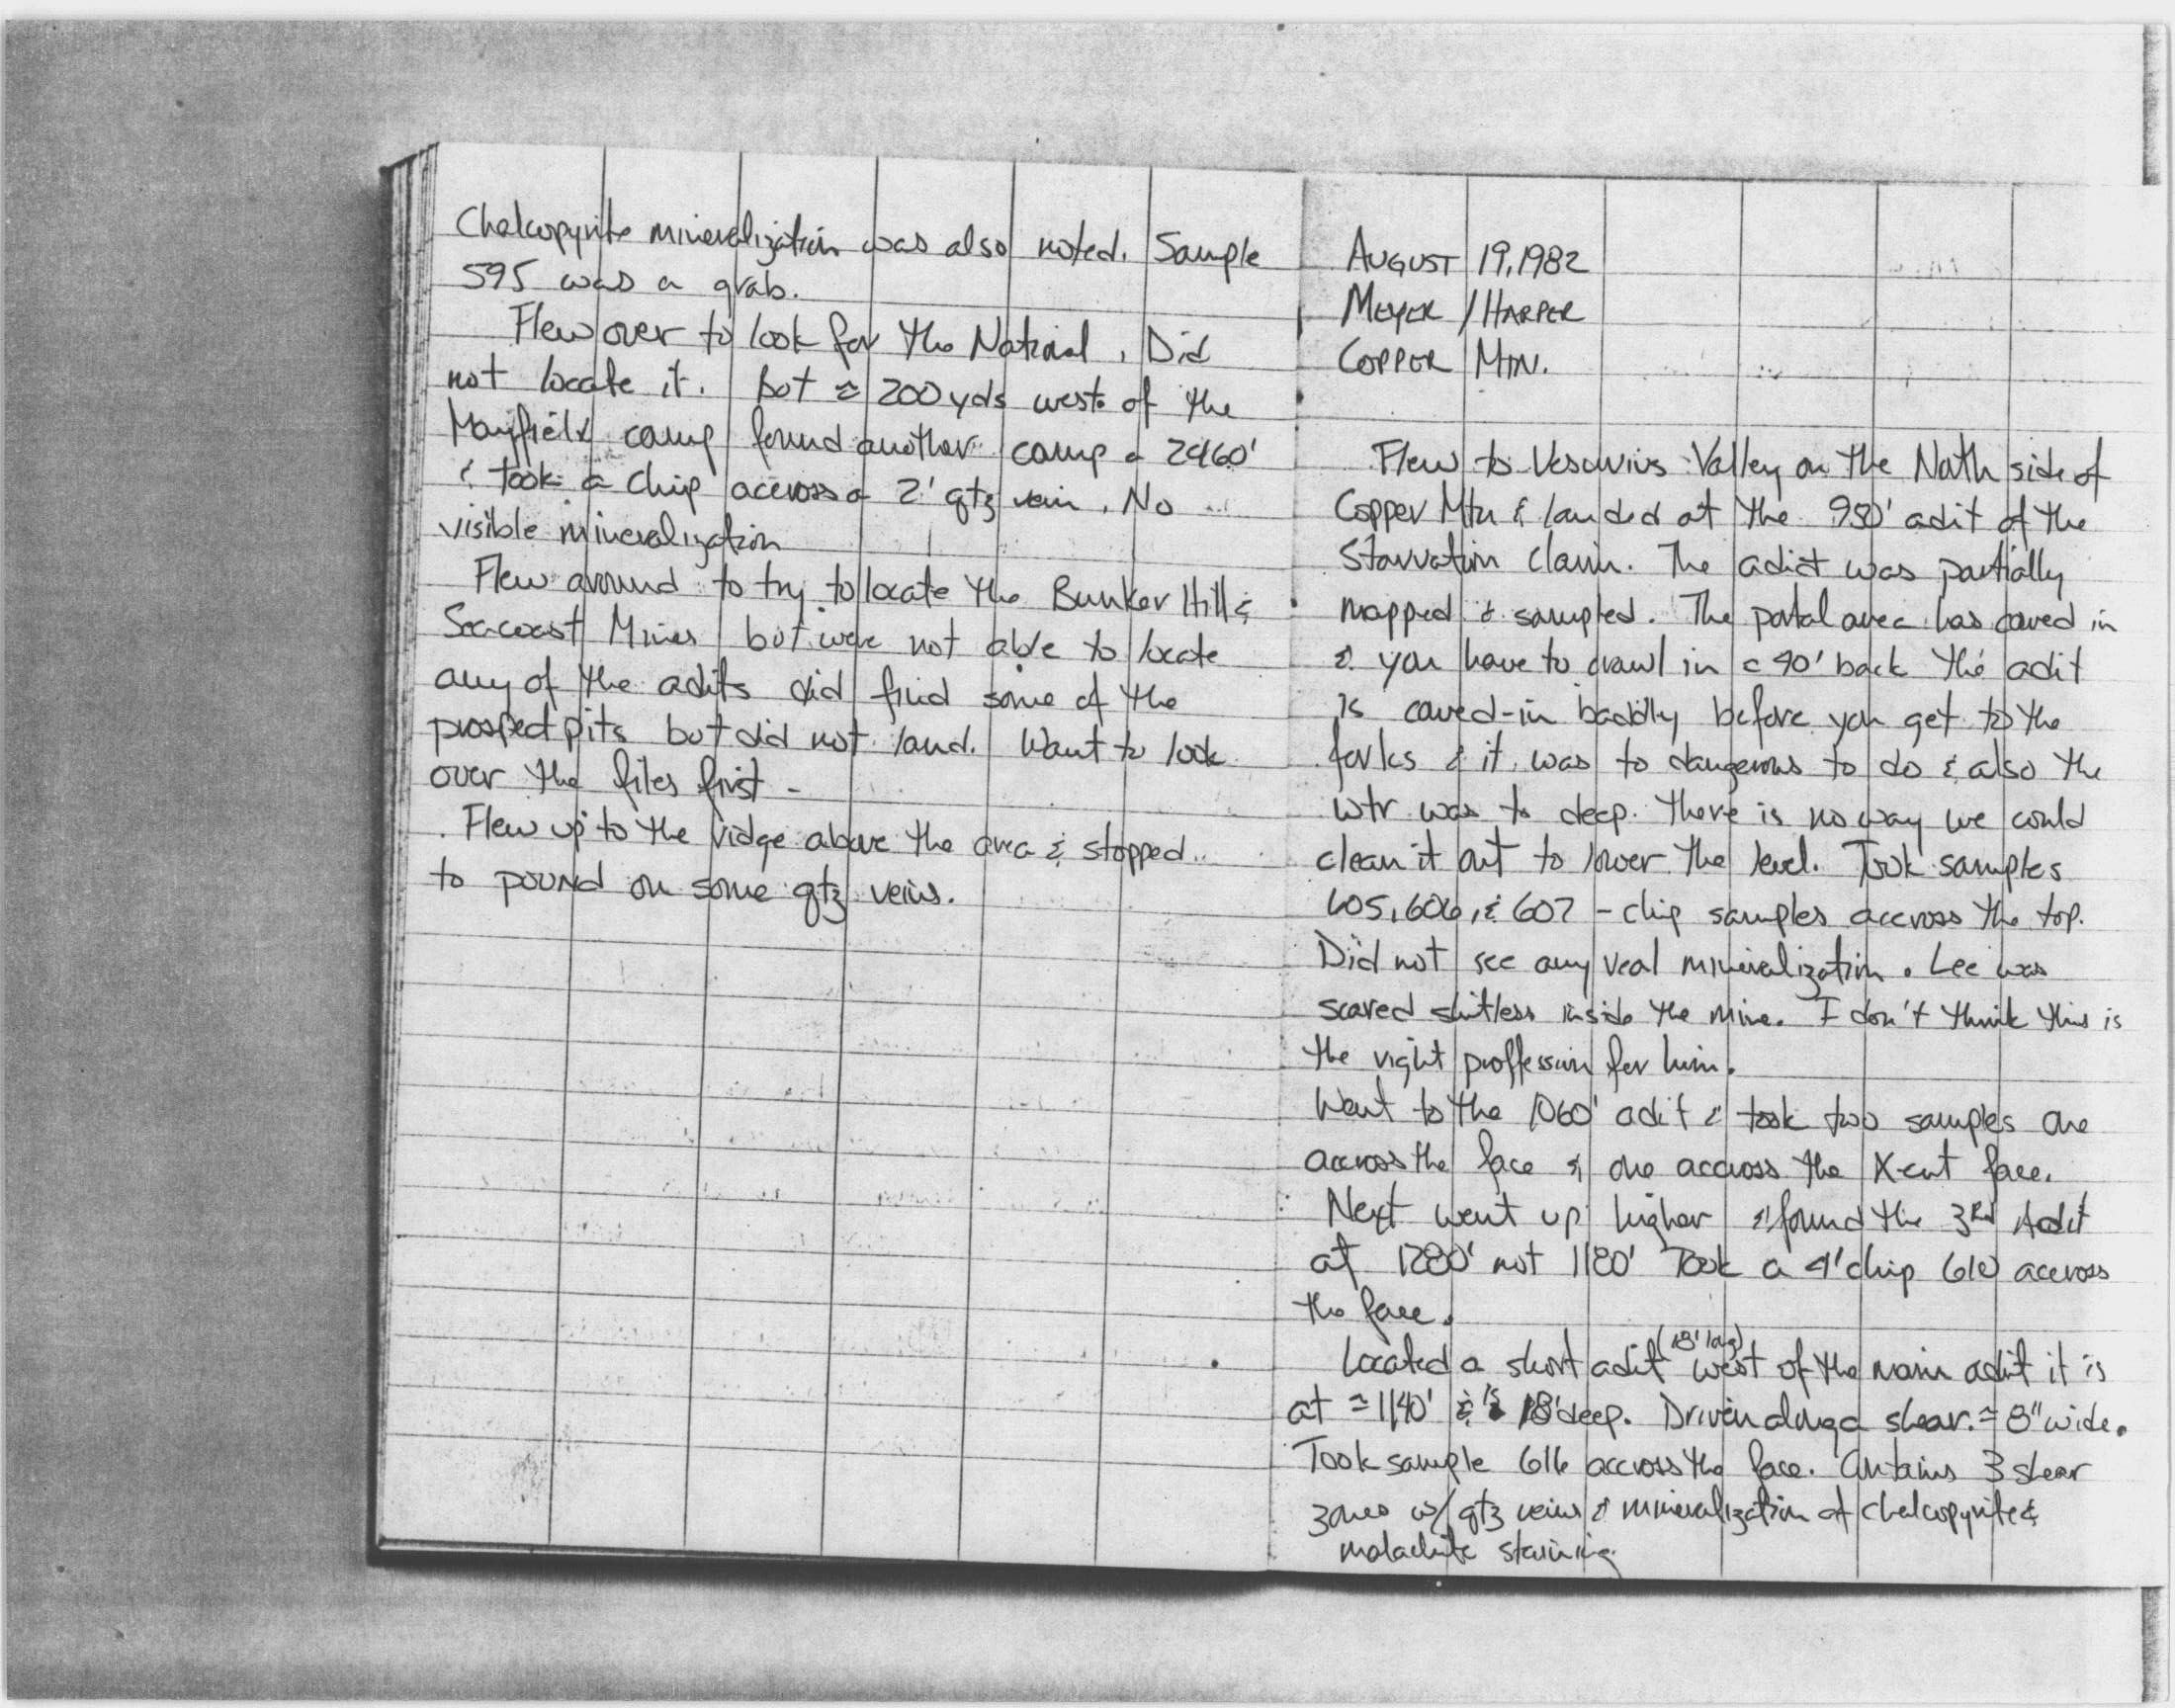 Chalcopyrite mineralization was also noted. Sample
595 was a grab.
Flew over to look for the National. Did
not locate it. But ≈ 200 yds west of the
Mayfield camp found another camp @ 2460'
& took a chip accross a 2' qtz vein. No
visible mineralization
Flew around to try to locate the Bunker Hill &
Seacoast Mines but were not able to locate
any of the adits did find some of the
prospect pits but did not land. Want to look
over the files first -
Flew up to the ridge above the area & stopped
to pound on some qtz veins.
AUGUST 19, 1982
MEYER / HARPER
COPPER MTN.
Flew to Vesuvius Valley on the North side of
Copper Mtn & landed at the 950' adit of the
Starvation claim. The adict was partially
mapped & sampled. The portal area has caved in
& you have to crawl in @ 40' back the adit
is caved-in baddly before you get to the
forks & it was to dangerous to do & also the
wtr was to deep. There is no way we could
clean it out to lower the level. Took samples
605, 606, & 607 - chip samples accross the top.
Did not see any real mineralization. Lee was
scared shitless inside the mine. I don't think this is
the right proffession for him.
Went to the 1060' adit & took two samples one
accross the face & one accross the X-cut face.
Next went up higher & found the 3RD Adit
at 1280' not 1180' Took a 4' chip 610 accross
the face.
Located a short adit (18' long) west of the main adit it is
at ≈ 1140' & is 18' deep. Driven along a shear. ≈ 8" wide.
Took sample 616 accross the face. Contains 3 shear
zones w/ qtz veins & mineralization of chalcopyrite &
malachite staining